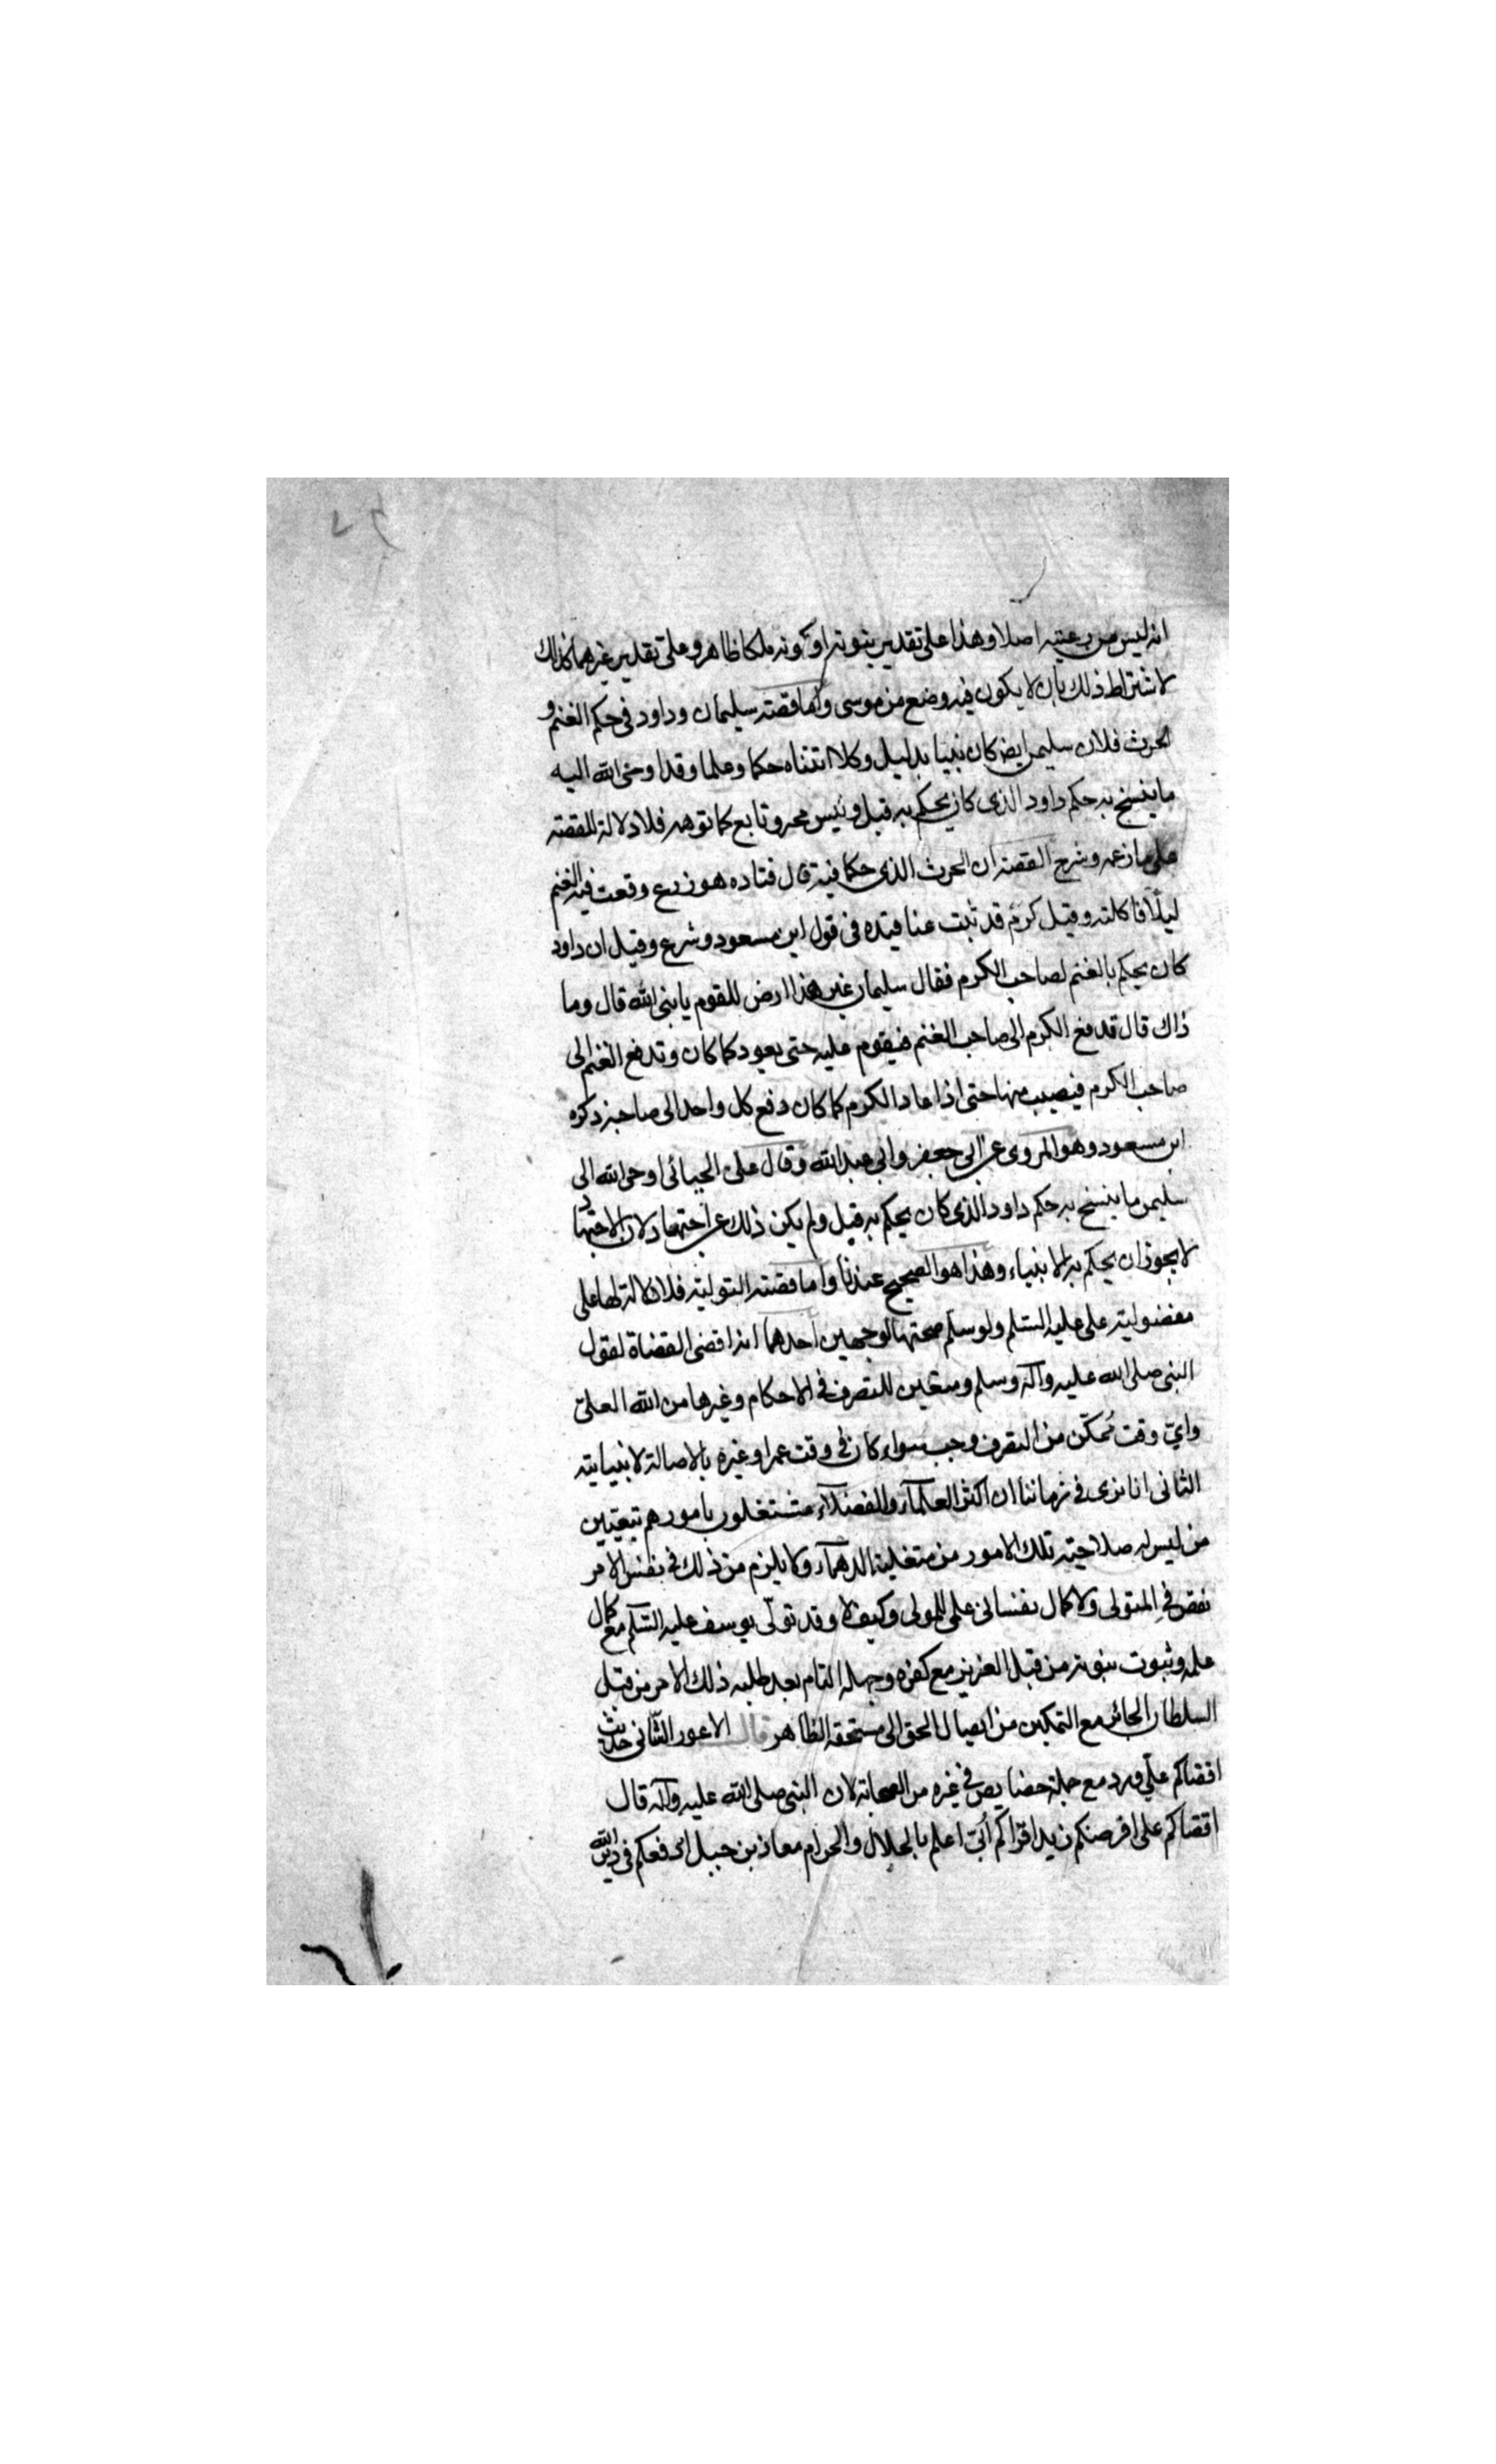 انه ليس من رعيته اصلا وهذا على تقدير نبوته او كونه ملكا ظاهر وعلى تقدير غيرهما كذلك
لاشتراط ذلك بان لا يكون فيه وضع من موسى واما قصته سليمان وداود في حكم الغنم و
الحرث فلان سليمن ايض كان نبيا بدليل وكلا اتيناه حكما وعلما وقد اوحى الله اليه
ما ينسخ به حكم داود الذى كان يحكم به قبل وليس مجرد تابع كما توهم فلا دلالة للقصته
على ما زعمه وشرح القصته ان الحرث الذى حكما فيه قال قتاده هو زرع وقعت فيه الغنم
ليلًا فاكلته وقيل كرم قد نبت عناقيده فى قول ابن مسعود وشرع وقيل ان داود
كان يحكم بالغنم لصاحب الكرم فقال سليمان غير هذا ارض للقوم يا نبى الله قال وما
ذاك قال تدفع الكرم الى صاحب الغنم فيقوم عليه حتى يعود كما كان وتدفع الغنم الى
صاحب الكرم فيصيب منها حتى اذا عاد الكرم كما كان دفع كل واحد الى صاحبه ذكره
ابن مسعود وهو المروى عن ابى جعفر وابى عبد الله وقال على الجبائى اوحى الله الى
سليمن ما ينسخ به حكم داود الذى كان يحكم به قبل ولم يكن ذلك عن اجتهاد لان الاجتهاد
لا يجوز ان يحكم به الانبياء وهذا هو الصحيح عندنا واما قصته التوليته فلا دلالة لها على
مفضوليته على عليه السلم ولو سلم صحتها لوجهين احدهما انه اقضى القضاة لقول
النبى صلى الله عليه وآله وسلم ومتعين للتصرف في الاحكام وغيرها من الله العلىّ
واىّ وقت تمكّن من التصرف وجب سواء كان فى وقت عمر او غيره بالاصالة لا بنيابته
الثانى انا نرى فى زماننا ان اكثر العلمآء والفضلآء مشتغلون بامورهم بتعيين
من ليس له صلاحيته تلك الامور من متغلبة الدهمآء ولا يلزم من ذلك فى نفس الامر
نقص في المتولى ولا كمال نفسانى على المولى وكيف لا وقد تولّى يوسف عليه السّلم مع كمال
علمه وثبوت نبوته من قبل العزيز مع كفره وجهله التام بعد طلبه ذلك الامر من قبل
السلطان الجائر مع التمكين من ايصال الحق الى مستحقه الظاهر قال الاعور الثّانى حديث
اقضاكم علىّ ورد مع جملة خصايص في غيره من الصحابة لان النبى صلى الله عليه وآله قال
اقضاكم على افرضكم زيد اقراكم أُبىّ اعلم بالحلال والحرام معاذ بن جبل ارفعكم فى دين الله